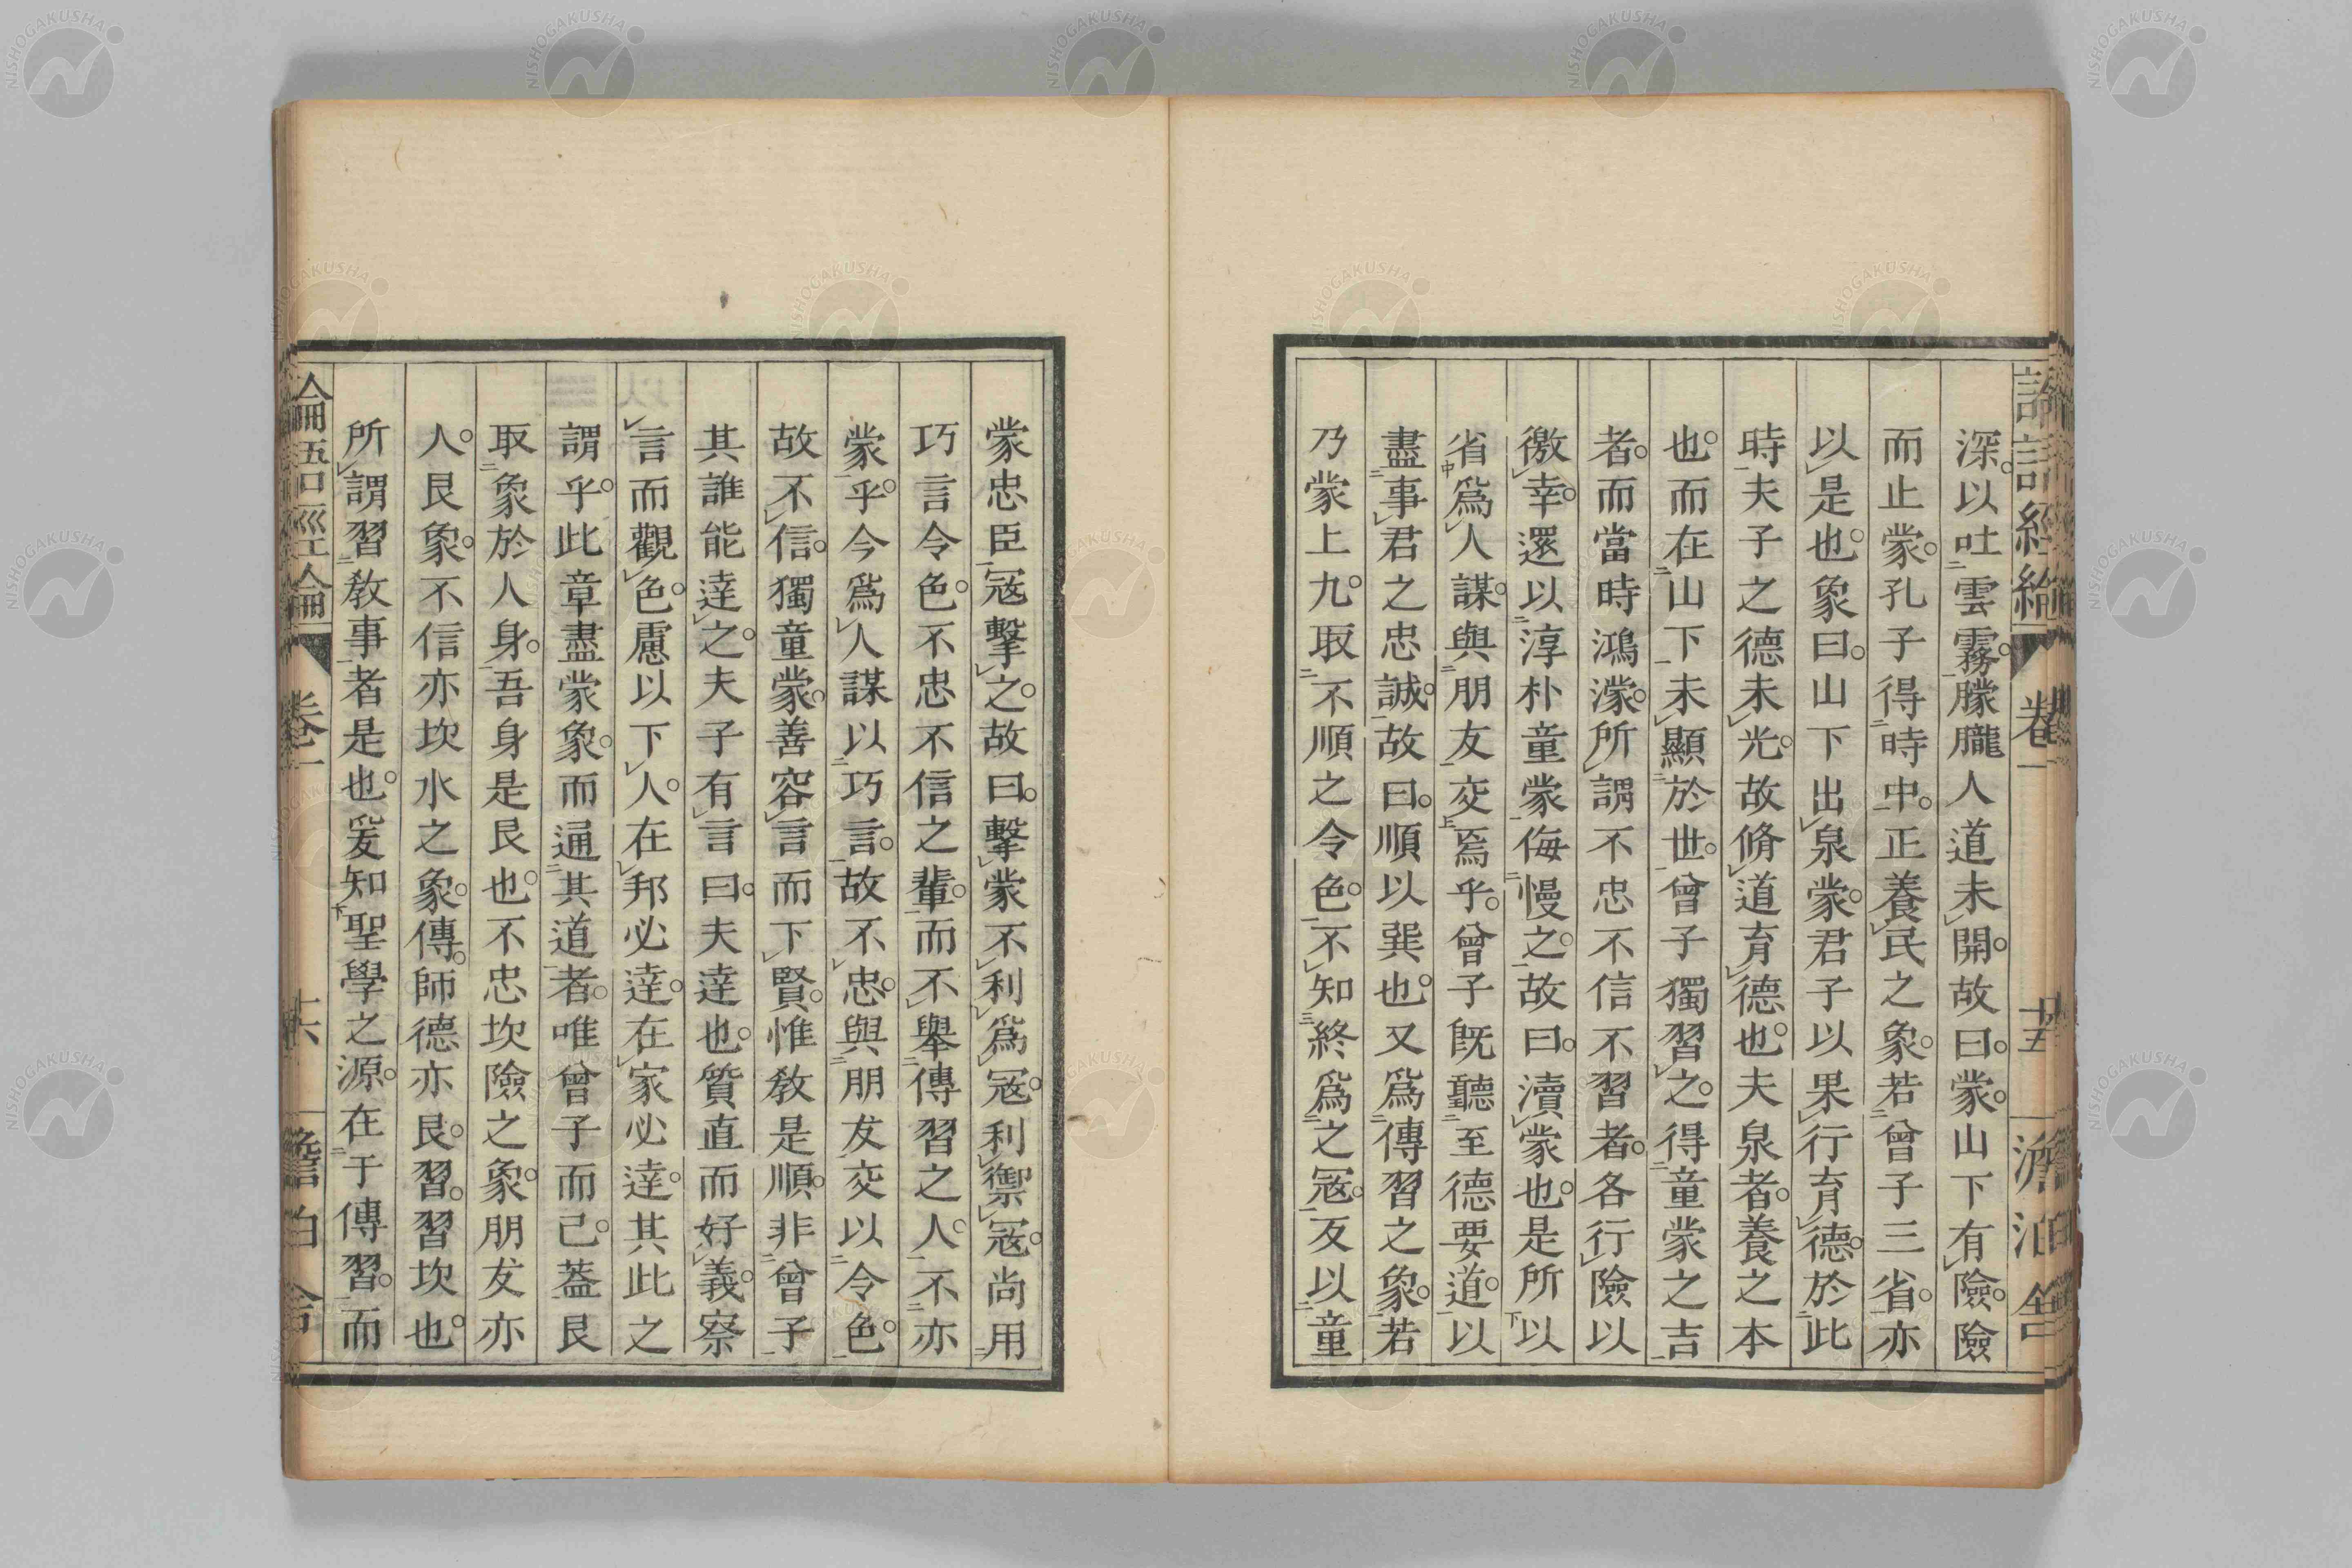 論語經綸 卷一 十五 澹泊舍
深。以吐雲霧。朦朧人道未開。故曰。蒙。山下有險。險
而止蒙。孔子得時中。正養民之象。若曾子三省。亦
以是也。象曰。山下出泉蒙。君子以果行育德。於此
時夫子之德未光。故脩道育德也。夫泉者。養之本
也。而在山下未顯於世。曾子獨習之。得童蒙之吉
者。而當時鴻濛。所謂不忠不信不習者。各行險以
徼幸。還以淳朴童蒙侮慢之。故曰。瀆蒙也。是所以
省爲人謀。與朋友交焉乎。曾子既聽至德要道。以
盡事君之忠誠。故曰。順以巽也。又爲傳習之象。若
乃蒙上九。取不順之令色。不知終爲之寇。反以童
蒙忠臣寇擊之。故曰。擊蒙不利爲寇。利禦寇。尚用
巧言令色。不忠不信之輩。而不舉傳習之人。不亦
蒙乎。今爲人謀以巧言。故不忠。與朋友交以令色。
故不信。獨童蒙。善容言而下賢。惟教是順。非曾子
其誰能達之。夫子有言曰。夫達也。質直而好義。察
言而觀色。慮以下人。在邦必達。在家必達。其此之
謂乎。此章盡蒙象。而通其道者。唯曾子而已。蓋艮
取象於人身。吾身是艮也。不忠坎險之象。朋友亦
人。艮象。不信亦坎水之象。傳。師德亦艮。習。習坎也。
所謂習教事者是也。爰知聖學之源。在于傳習。而
論語經綸 卷一 十六 澹泊舍